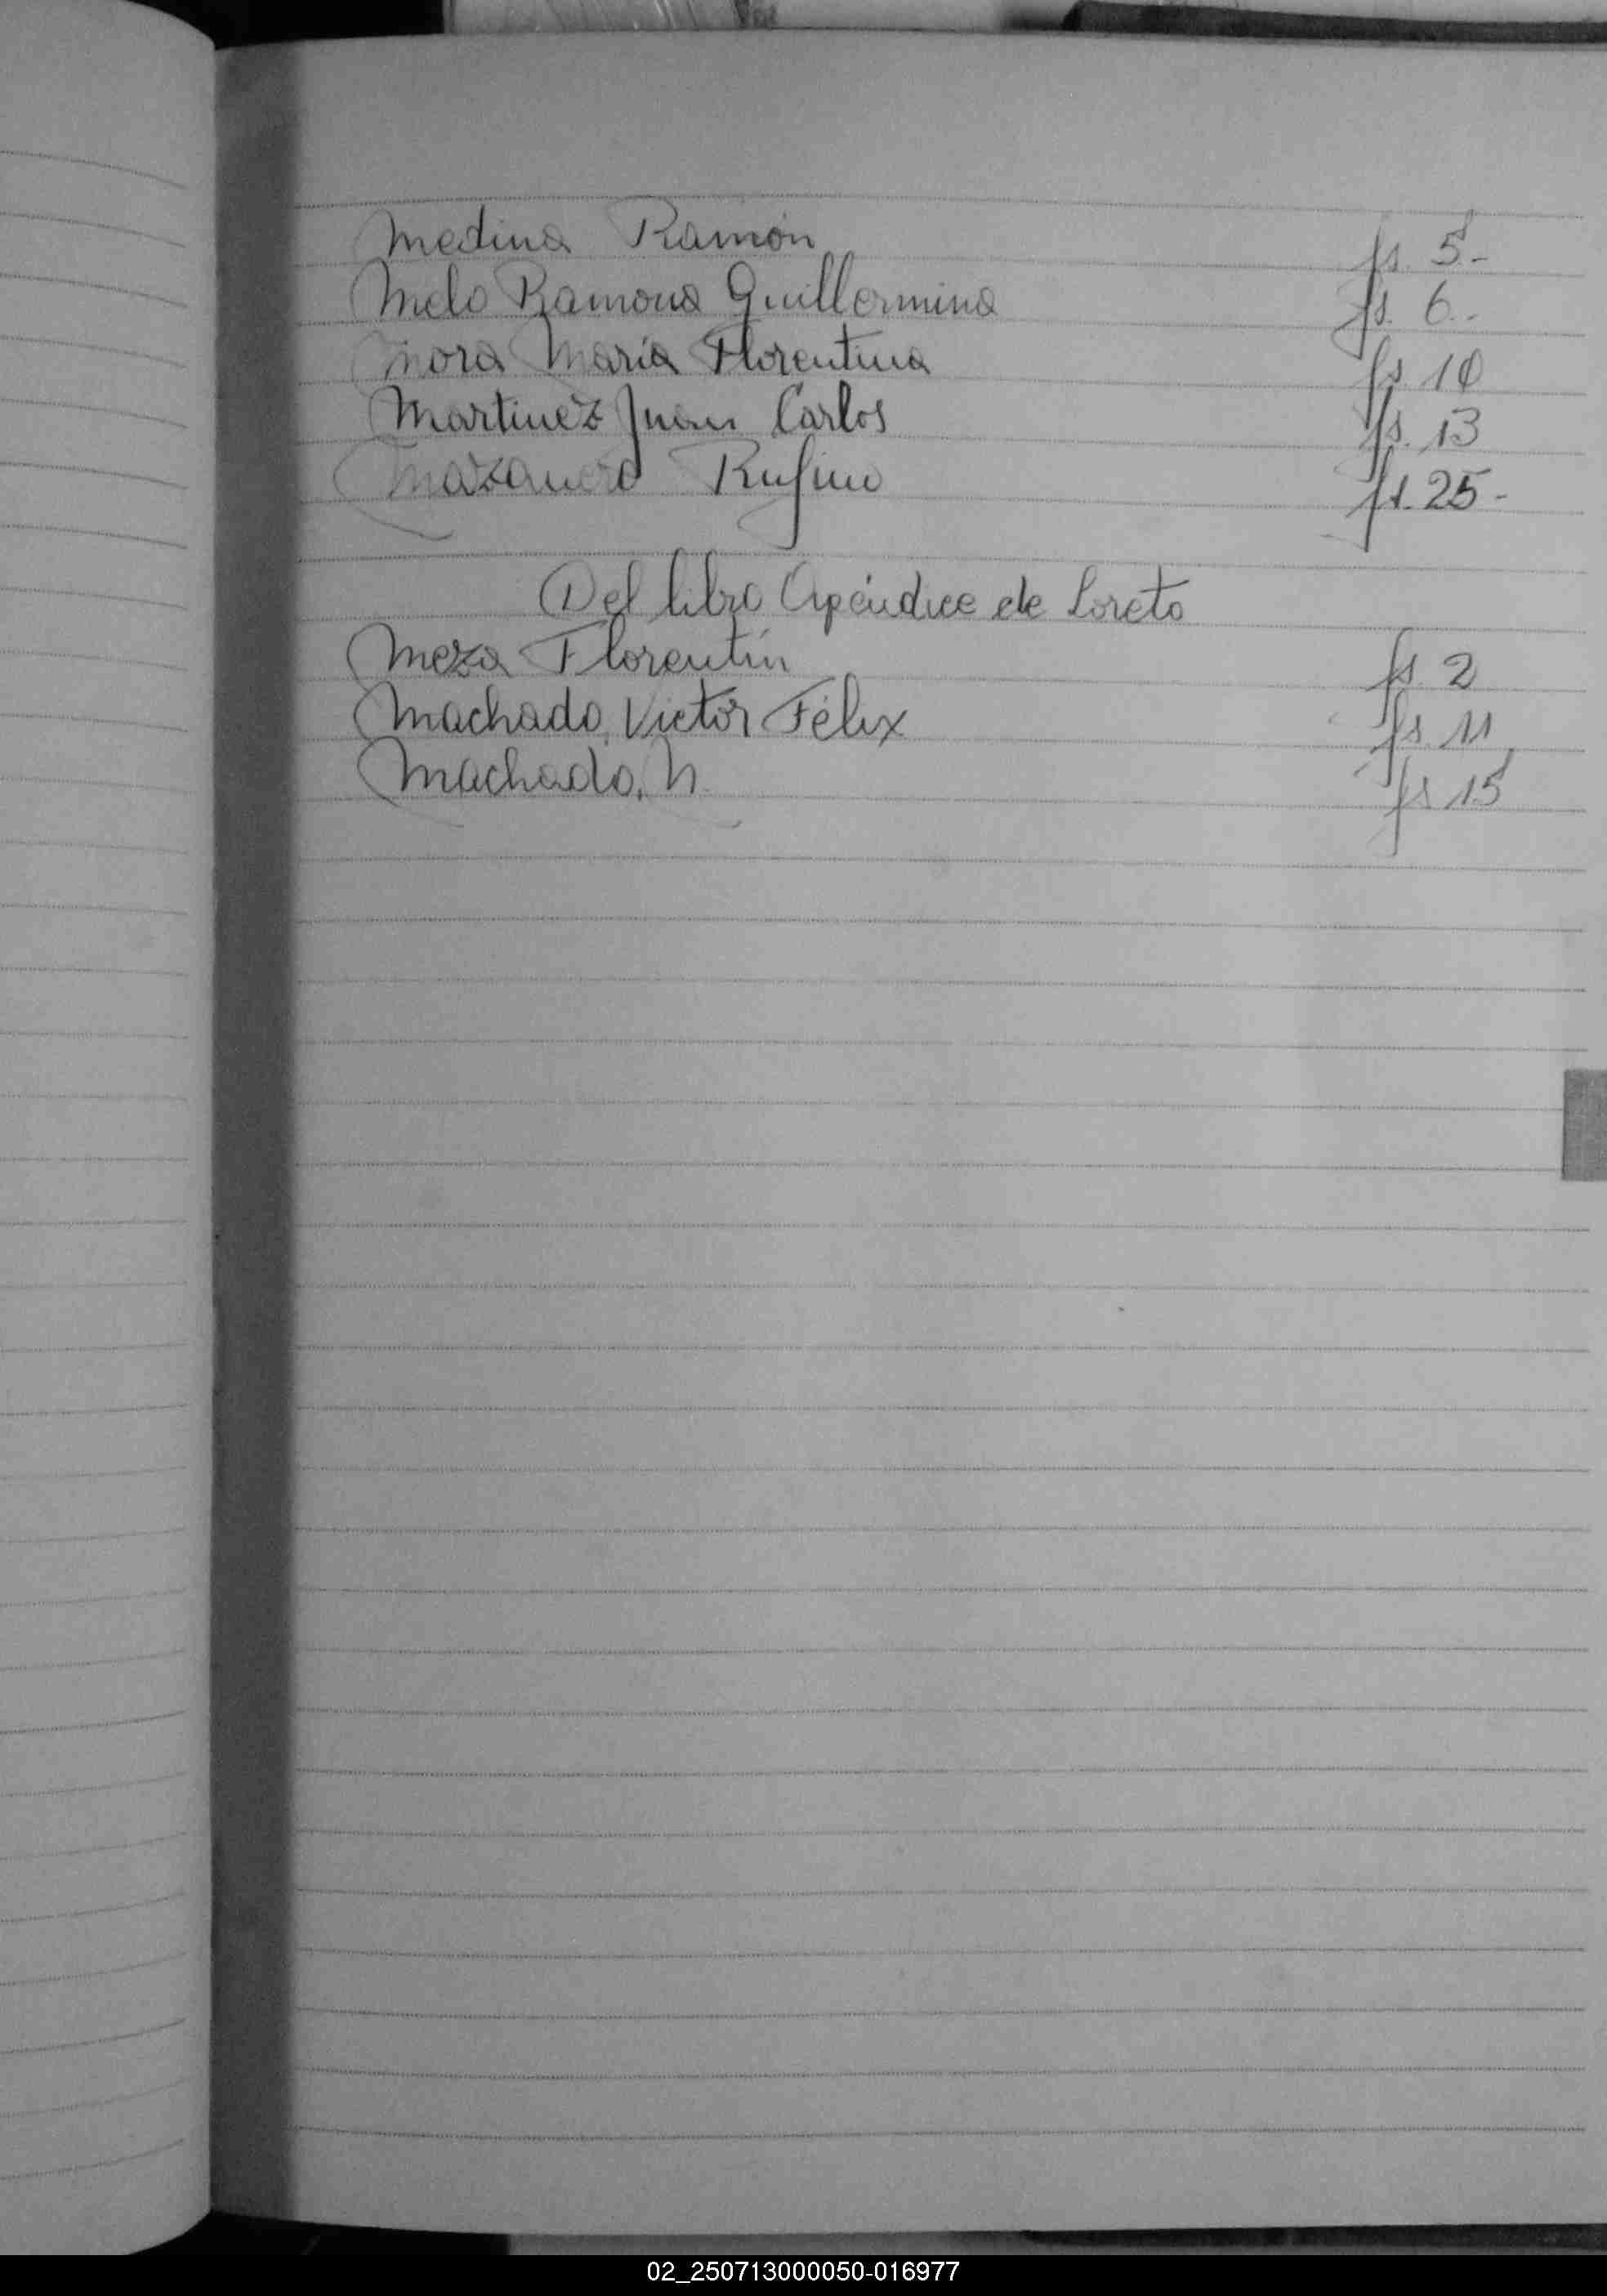 Medina Ramón fs. 5-
Melo Ramona Guillermina fs. 6.-
Mora María Florentina fs 10
Martinez Juan Carlos fs. 13
Rufino fs. 25-
Del libro Apéndice de Loreto
Meza Florentín fs 2
Machado, Victor Félix fs. 11
Machado, N. fs 15
02_250713000050-016977